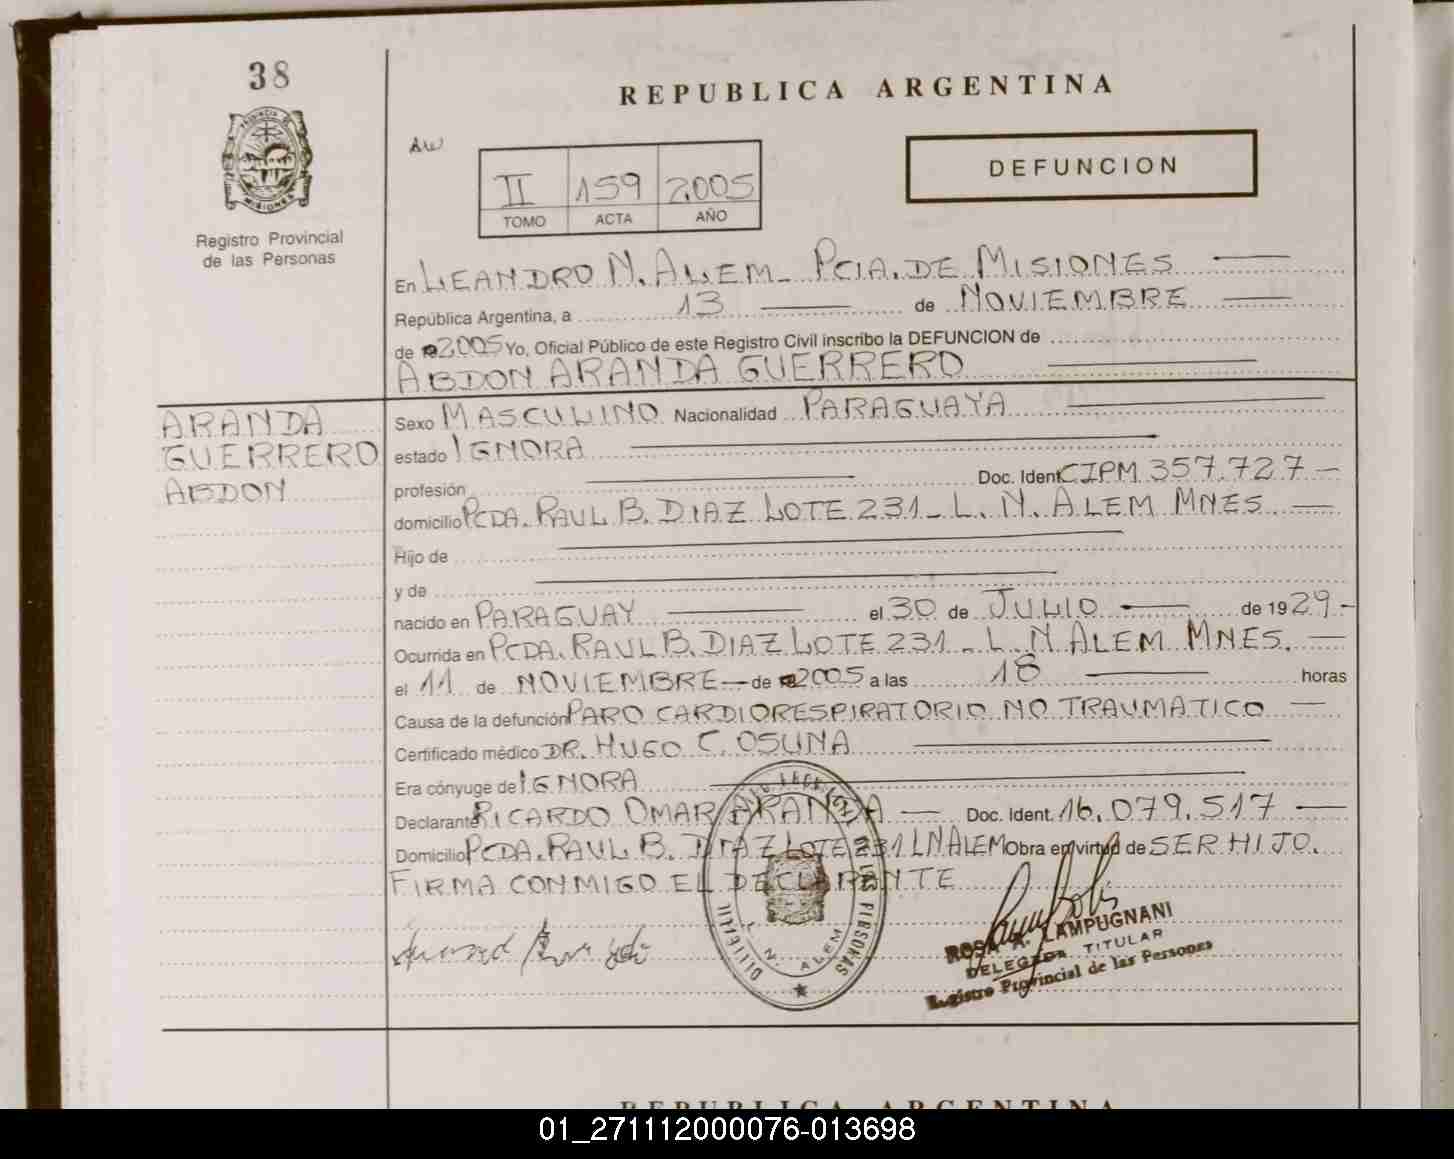 38
REPUBLICA ARGENTINA
DEFUNCION
II 159 2005
TOMO ACTA AÑO
Registro Provincial
de las Personas
En LEANDRO N. ALEM - PCIA. DE MISIONES
República Argentina, a 13 de NOVIEMBRE
de 2005 Yo, Oficial Público de este Registro Civil inscribo la DEFUNCION de
ABDON ARANDA GUERRERO
ARANDA
GUERRERO
ABDON
Sexo MASCULINO Nacionalidad PARAGUAYA
estado IGNORA
profesión Doc. Ident. CIPM 357.727 -
domicilio PCDA. RAUL B. DIAZ LOTE 231 - L. N. ALEM MNES
Hijo de
y de
nacido en PARAGUAY el 30 de JULIO de 1929 -
Ocurrida en PCDA. RAUL B. DIAZ LOTE 231 - L. N ALEM MNES.
el 11 de NOVIEMBRE de 2005 a las 18 horas
Causa de la defunción PARO CARDIORESPIRATORIO NO TRAUMATICO
Certificado médico DR. HUGO C. OSUNA
Era cónyuge de IGNORA
Declarante RICARDO OMAR ARANDA Doc. Ident. 16.079.517
Domicilio PCDA. RAUL B. DIAZ LOTE 231 LN ALEM Obra en virtud de SER HIJO.
FIRMA CONMIGO EL DECLARANTE
DE LAS PERSONAS
L. N. ALEM
ROSA A. LAMPUGNANI
DELEGADA TITULAR
Registro Provincial de las Personas
REPUBLICA ARGENTINA
01_271112000076-013698